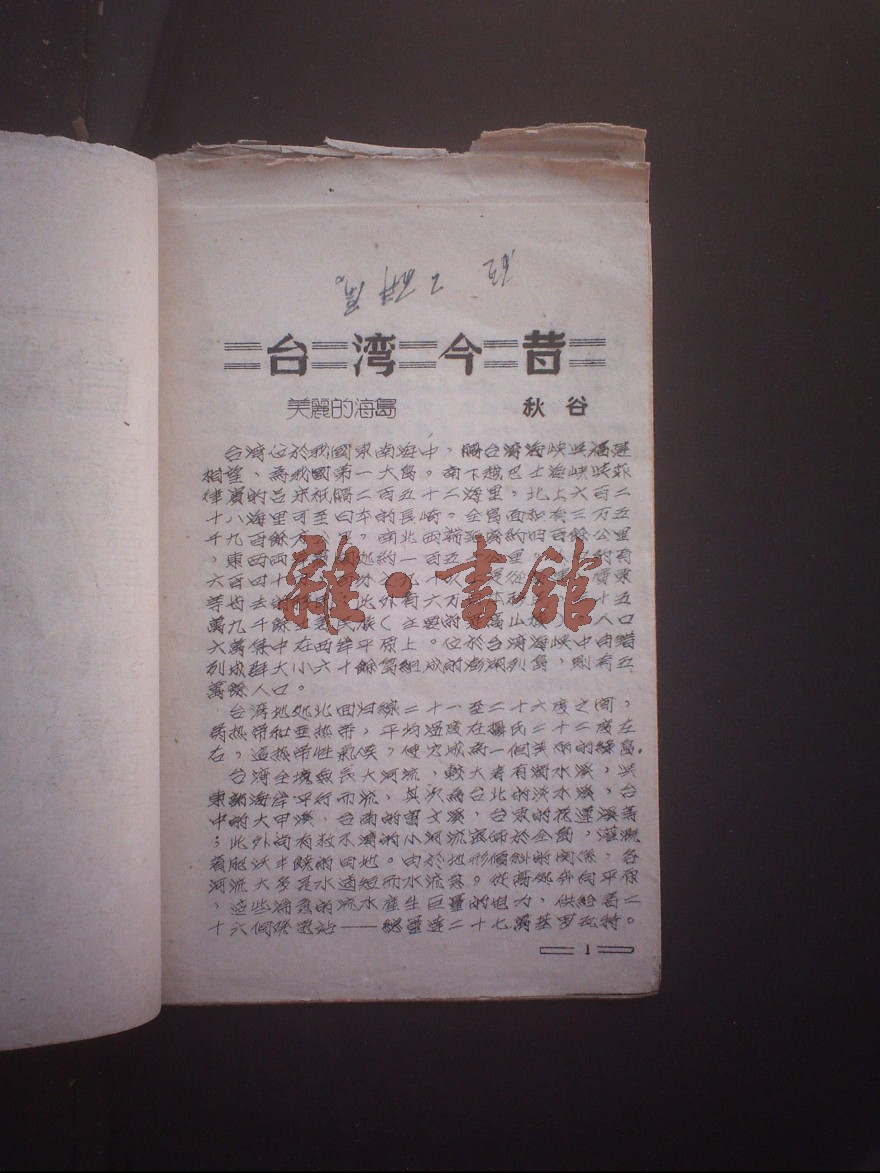 台湾今昔
美麗的海島 秋谷
台湾位於我國東南海中，隔台湾海峡与福建
相望，為我國第一大島。南下越巴士海峡与菲
律賓的呂宋祇隔二百五十二海里，北上六百二
十八海里可至日本的長崎。全島面积有三万五
千九百餘方公里，南北两端距離約四百餘公里
，東西兩
六百四十
等省去的 此外有六万
萬九千餘 民族（主要的 山族 人口
六萬集中在西岸平原上。位於台湾海峡中由
列成群大小六十餘島組成的澎湖列島，則有五
萬餘人口。
台湾地处北回归線二十一至二十六度之间，
為热带和亜热带，平均温度在攝氏二十二度左
右，這热带性氣候，使它成為一個美丽的緑島。
台湾全境無長大河流，較大者有濁水溪，与
東部海岸平行而流，其次為台北的淡水溪，台
中的大甲溪，台南的曽文溪，台東的花蓮溪等
；此外尚有数不清的小河流密佈於全島，灌溉
着肥沃丰饒的田地。由於地形傾斜的関係，各
河流大多是水道短而水流急。從高处奔向平原
，這些湍急的流水產生巨量的电力，供給着二
十六個發電站——総量達二十七萬基罗瓦特。
1
雜·書館